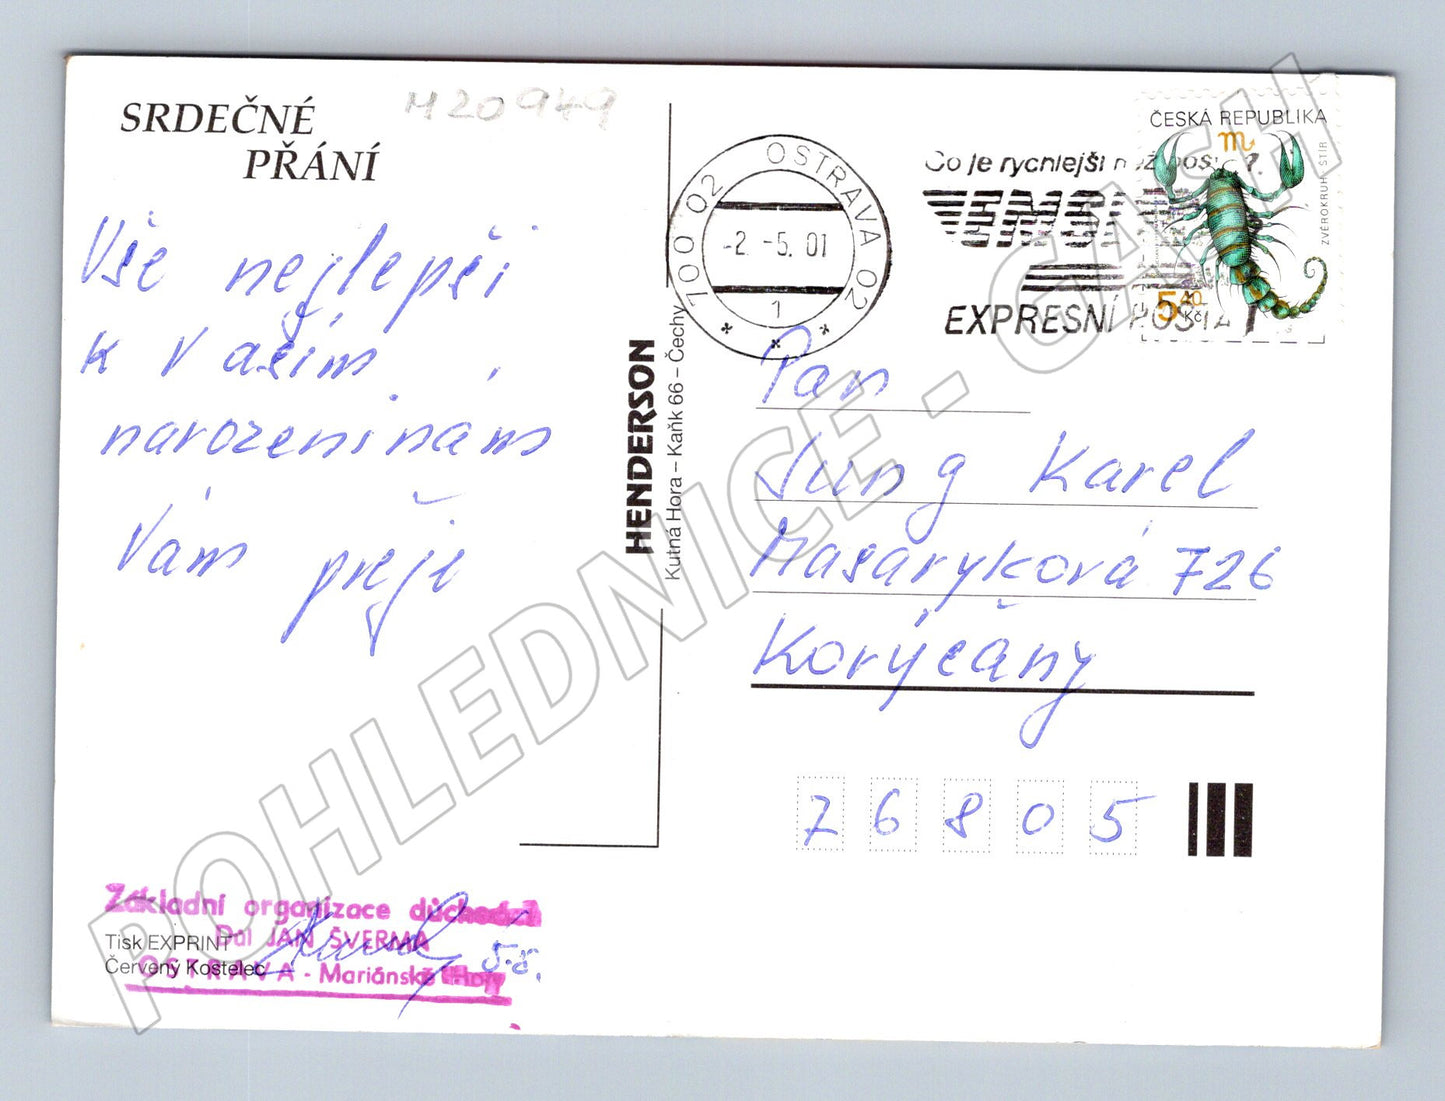 SRDEČNÉ
PŘÁNÍ
M20949
Vše nejlepší
k Vašim
narozeninám
Vám přeje
Základní organizace důchodců
Důl JAN ŠVERMA
OSTRAVA - Mariánské Hory
5.5.
Tisk EXPRINT
Červený Kostelec
HENDERSON
Kutná Hora – Kaňk 66 – Čechy
700 02 OSTRAVA 02
-2.-5.01
1
Co je rychlejší než pošta?
EMS
EXPRESNÍ POŠTA
ČESKÁ REPUBLIKA
ZVĚROKRUH - ŠTÍR
5 40 Kč
Pan
Jung Karel
Masaryková 726
Korýčány
76805
POHLEDNICE - GASH